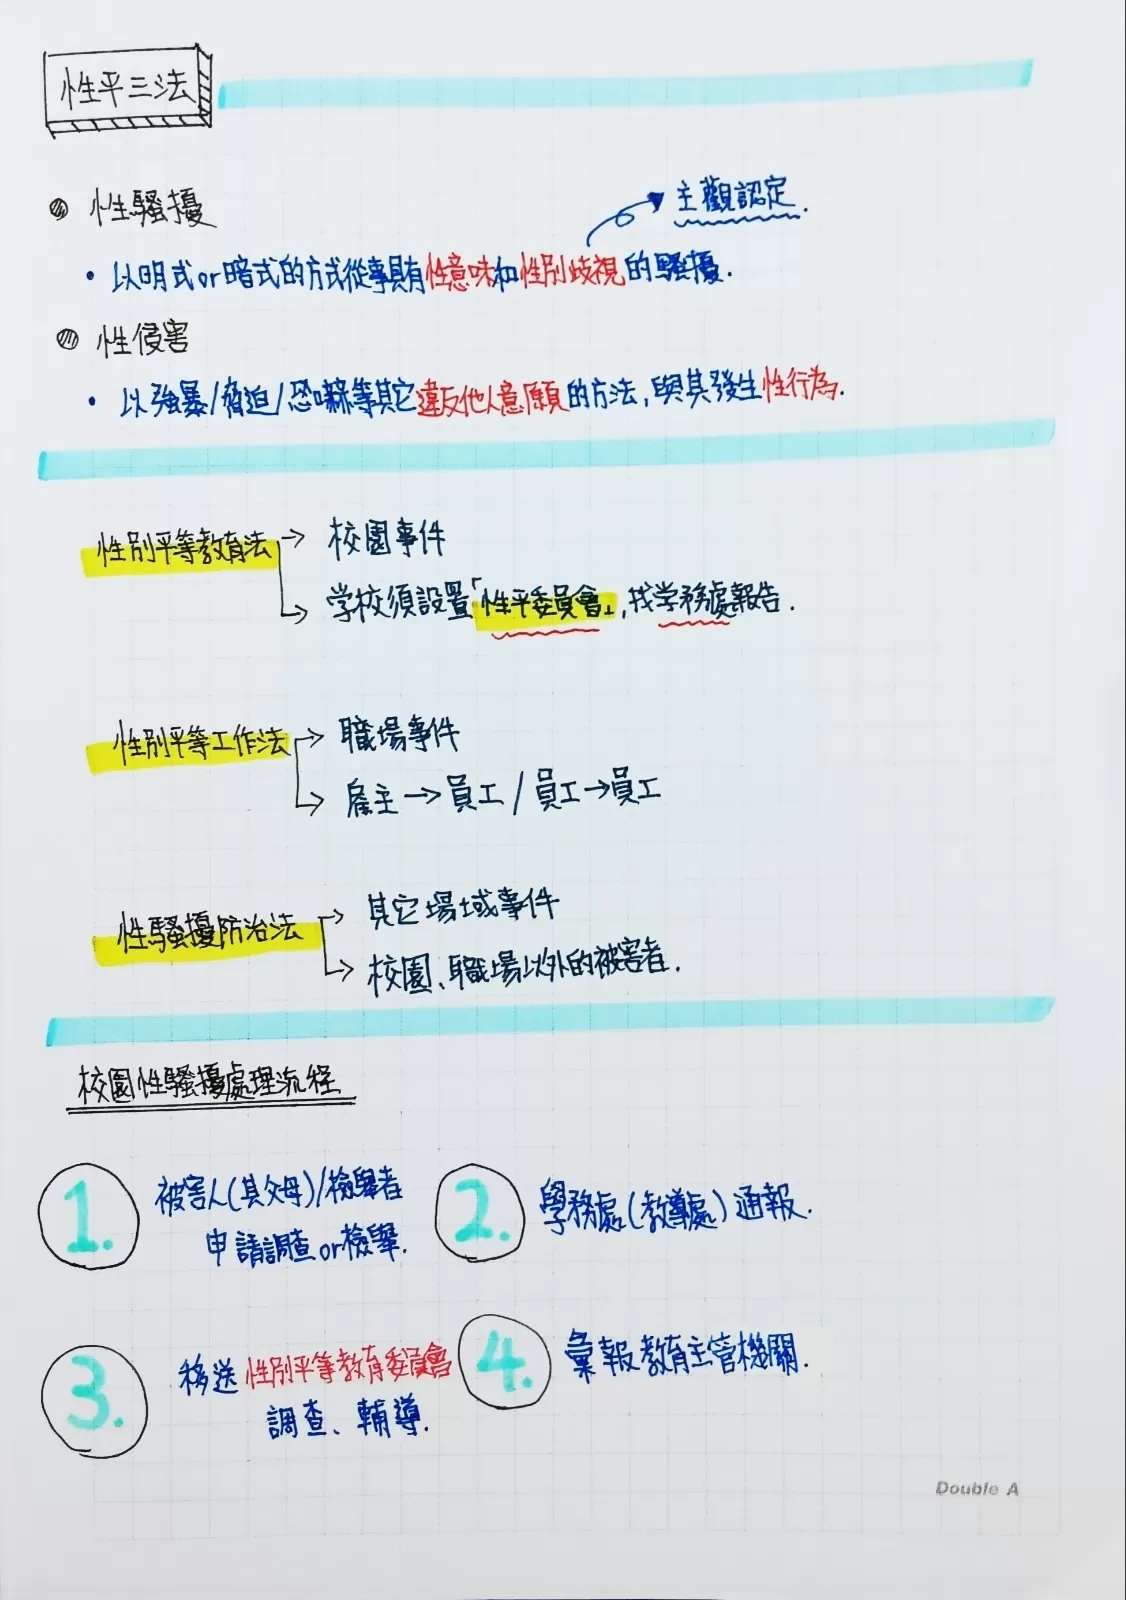 性平三法
性騷擾
主觀認定.
・以明式or暗式的方式從事具有性意味和性別歧視的騷擾.
性侵害
・以強暴/脅迫/恐嚇等其它違反他人意願的方法,與其發生性行為.
性別平等教育法→校園事件
→学校須設置「性平委員會」,找学務處報告.
性別平等工作法→職場事件
→雇主→員工/員工→員工
性騷擾防治法→其它場域事件
→校園、職場以外的被害者.
校園性騷擾處理流程
1. 被害人(其父母)/檢舉者
申請調查or檢舉.
2. 學務處(教導處)通報.
3. 移送性別平等教育委員會
調查、輔導.
4. 彙報教育主管機關.
Double A